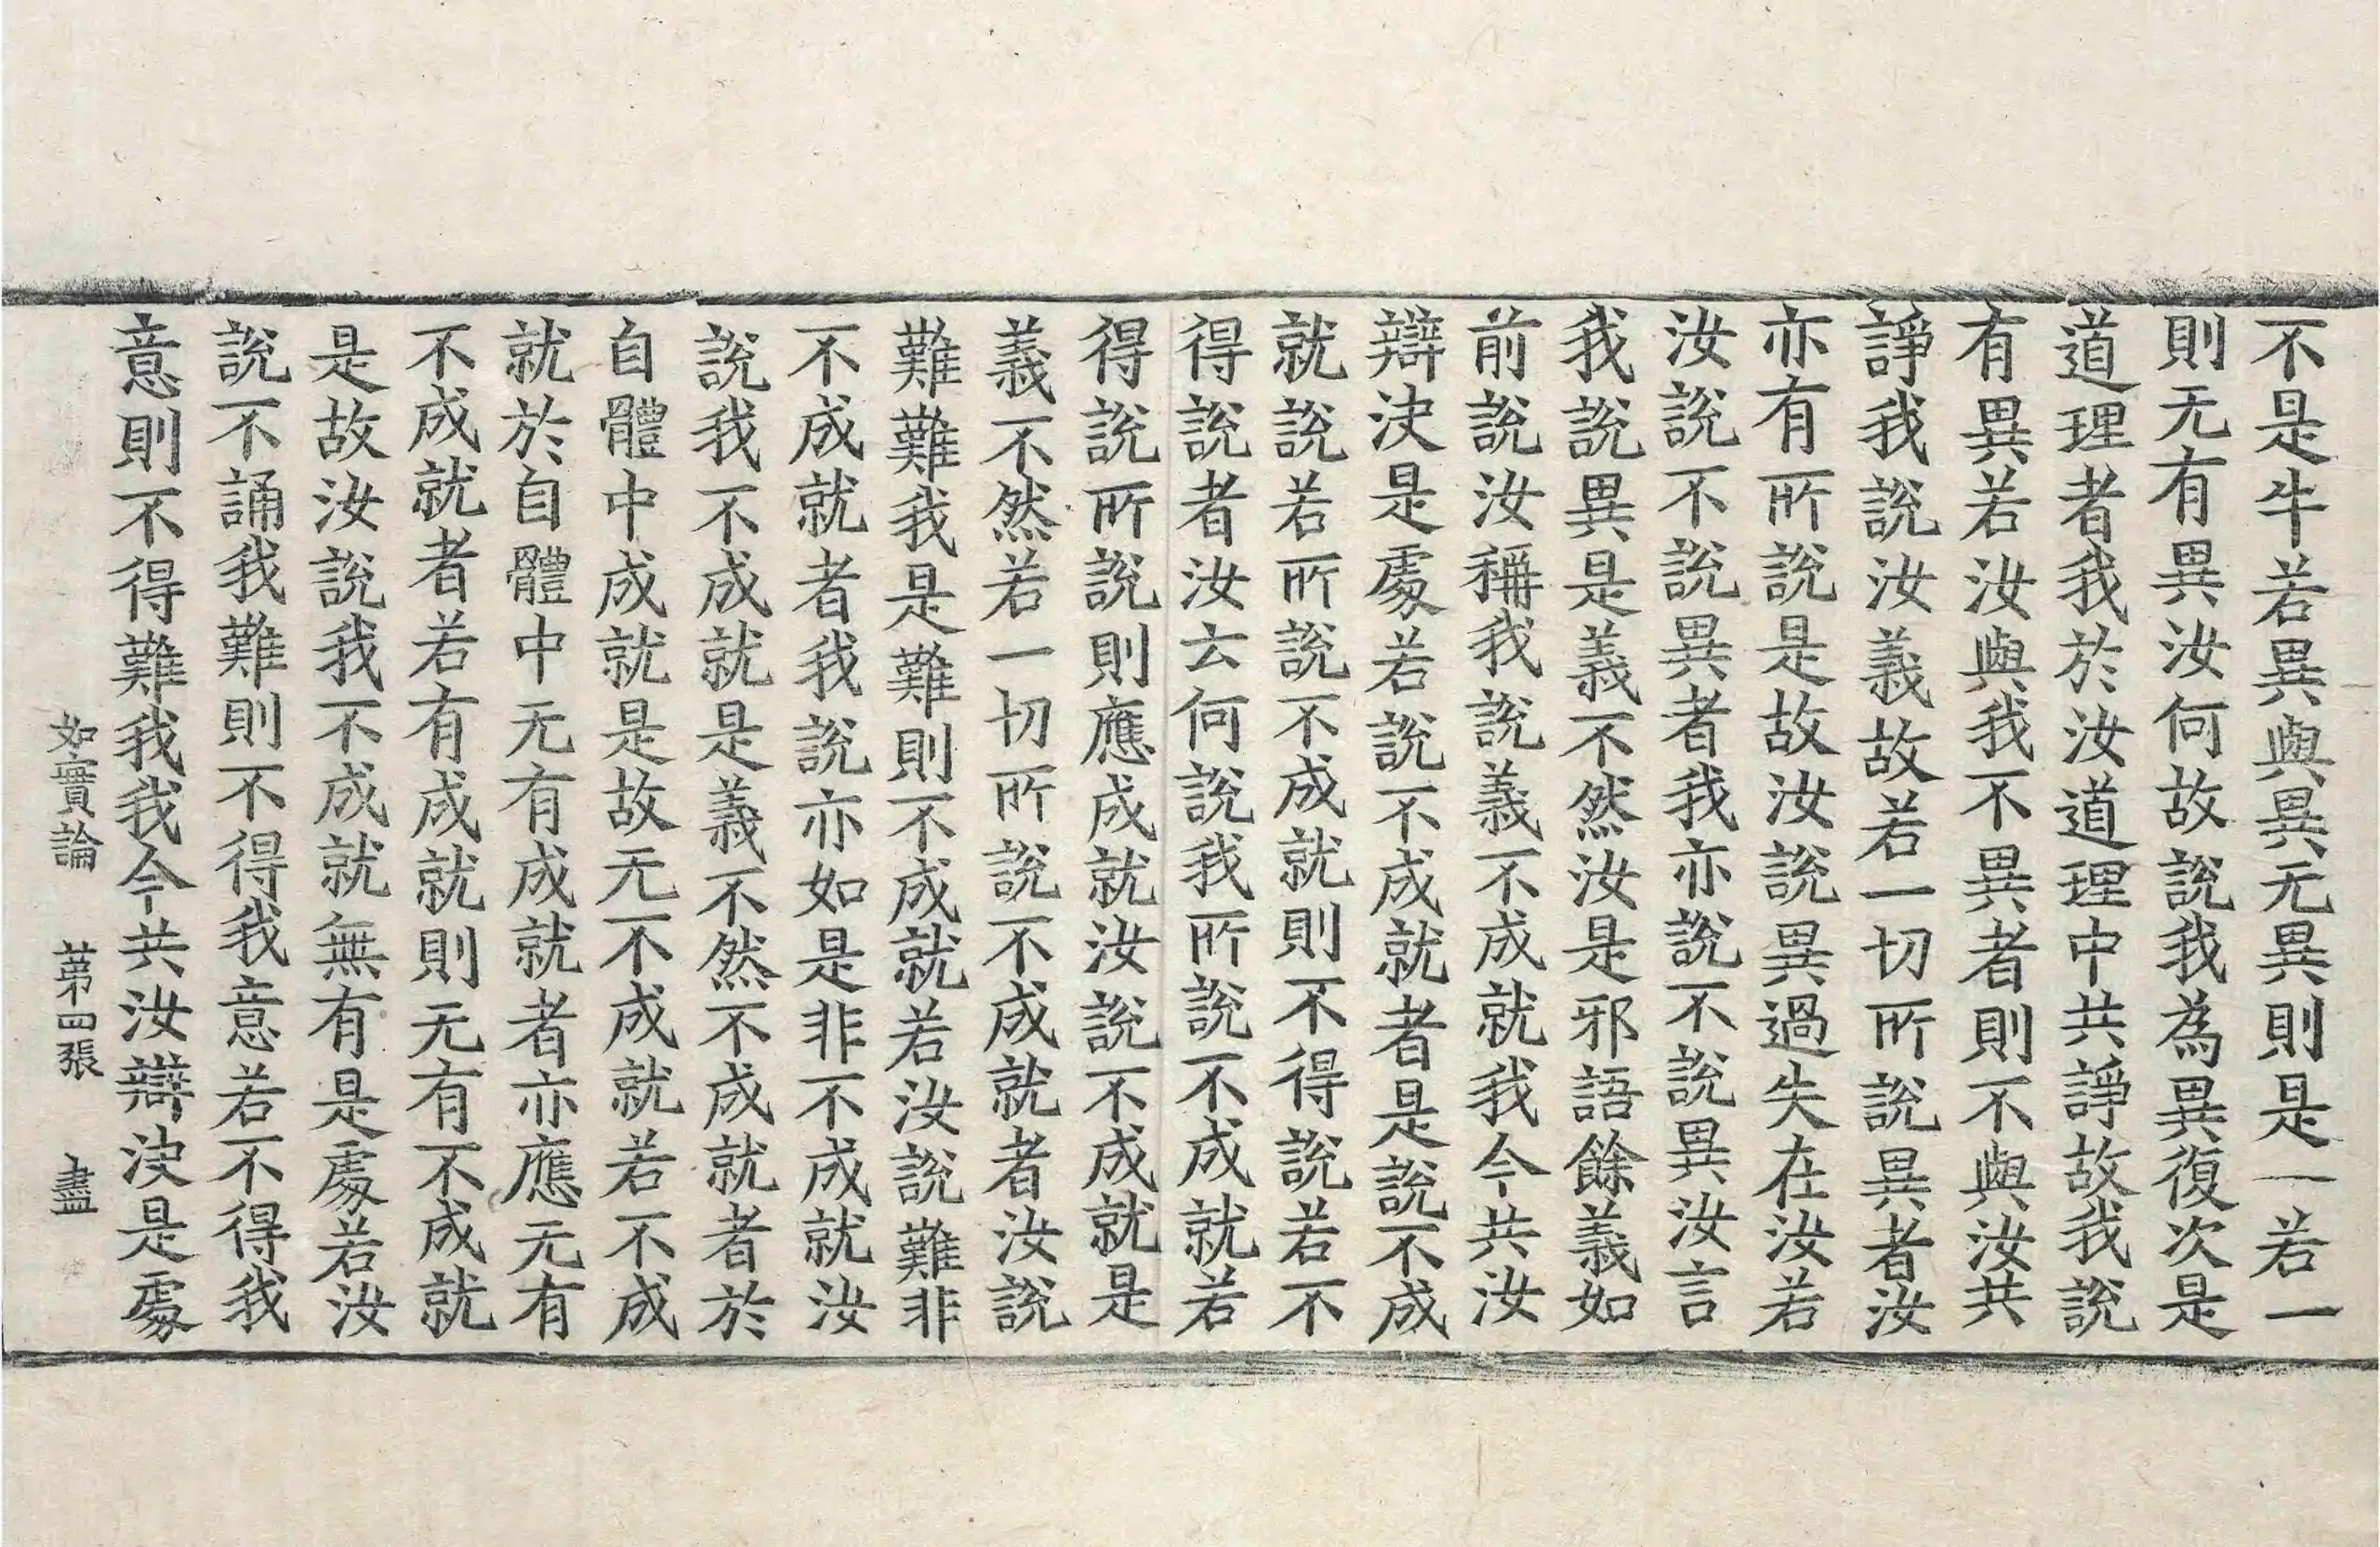 不是牛若異與異无異則是一若一
則无有異汝何故說我為異復次是
道理者我於汝道理中共諍故我說
有異若汝與我不異者則不與汝共
諍我說汝義故若一切所說異者汝
亦有所說是故汝說異過失在汝若
汝說不說異者我亦說不說異汝言
我說異是義不然汝是邪語餘義如
前說汝稱我說義不成就我今共汝
辯決是處若說不成就者是說不成
就說若所說不成就則不得說若不
得說者汝云何說我所說不成就若
得說所說則應成就汝說不成就是
義不然若一切所說不成就者汝說
難難我是難則不成就若汝說難非
不成就者我說亦如是非不成就汝
說我不成就是義不然不成就者於
自體中成就是故无不成就若不成
就於自體中无有成就者亦應无有
不成就者若有成就則无有不成就
是故汝說我不成就無有是處若汝
說不誦我難則不得我意若不得我
意則不得難我我今共汝辯決是處
如實論 苐四張 盡